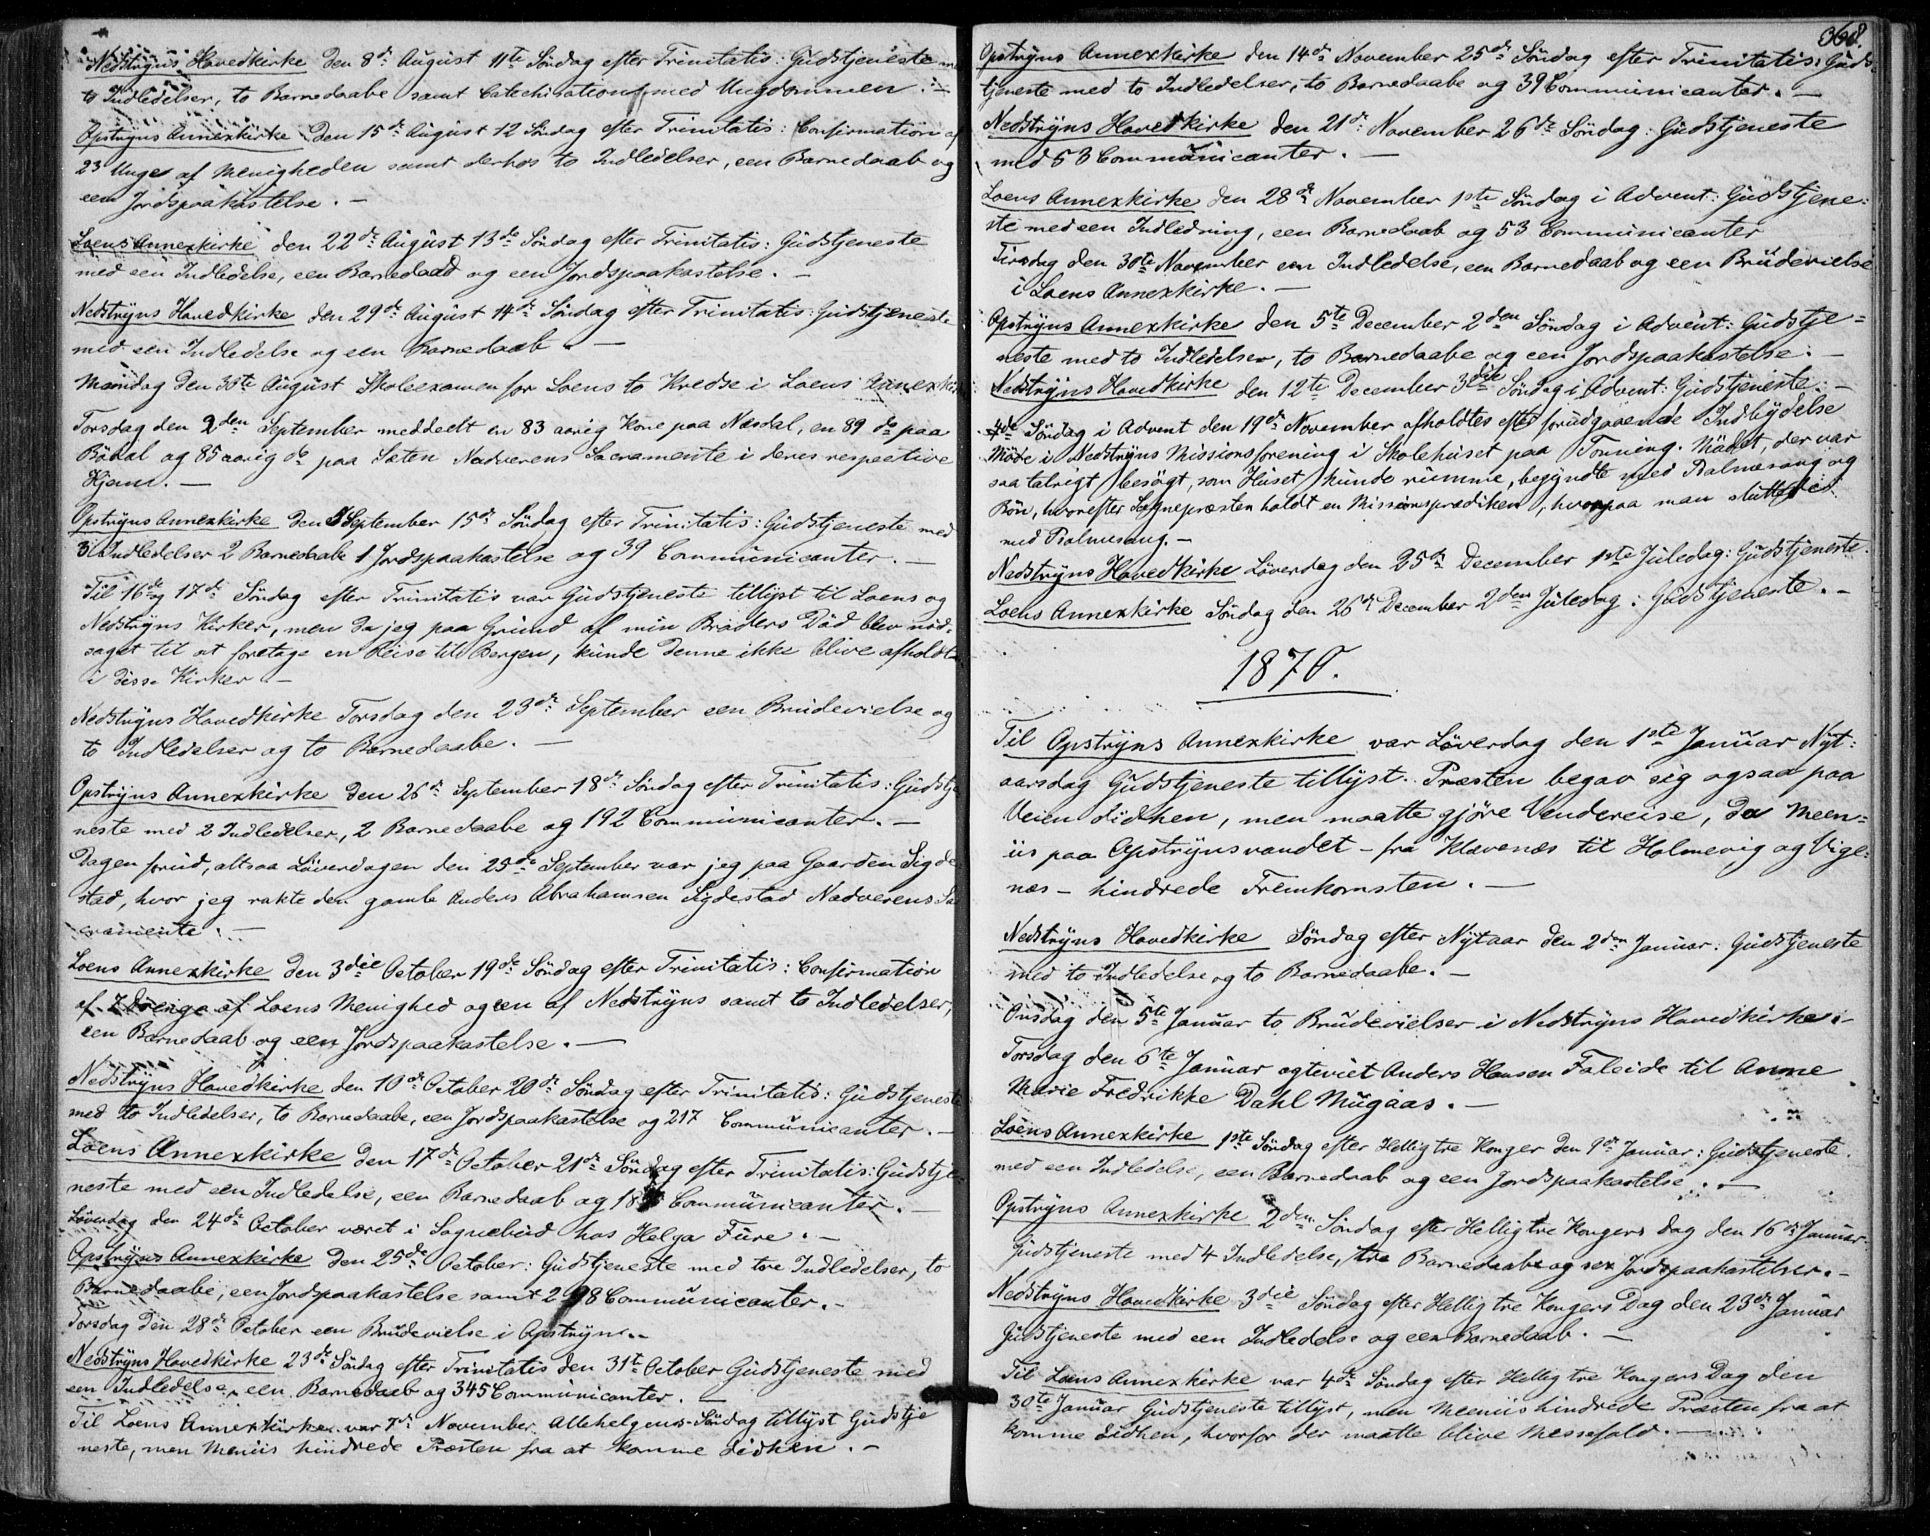 Nedstryns Hovedkirke den 8de August 11te Søndag efter Trinitatis: Gudstjeneste med
to Indledelser, to Barnedaabe samt Catechisation med Ungdommen. —
Opstryns Annexkirke den 15de August 12 Søndag efter Trinitatis: Confirmation af
23 Unge af Menigheden samt derhos to Indledelser, een Barnedaab og
een Jordspaakastelse. —
Loens Annexkirke den 22de August 13de Søndag efter Trinitatis: Gudstjeneste
med een Indledelse, een Barnedaab og een Jordspaakastelse. —
Nedstryns Hovedkirke den 29de August 14de Søndag efter Trinitatis: Gudstjeneste
med een Indledelse og een Barnedaab. —
Mandag den 30te August Skoleexamen for Loens to Kredse i Loens Annexkirke
Torsdag den 2den September meddeelt en 83 aarig Kone paa Næsdal, en 89 do paa
Bödal og 85 aarig do paa Sæten Nadverens Sacramente i deres respective
Hjem. —
Opstryns Annexkirke den 5 September 15de Søndag efter Trinitatis: Gudstjeneste med
3 Indledelser 2 Barnedaabe 1 Jordspaakastelse og 39 Communicanter. —
Til 16de og 17de Søndag efter Trinitatis var Gudstjeneste tillyst til Loens og
Nedstryns Kirker, men da jeg paa Grund af min Broders Död blev nöd-
saget til at foretage en Reise til Bergen, kunde denne ikke blive afholdt
i disse Kirker. —
Nedstryns Hovedkirke Torsdag den 23de September een Brudevielse og
to Indledelser og to Barnedaabe. —
Opstryns Annexkirke den 26de September 18de Søndag efter Trinitatis: Gudstje-
neste med 2 Indledelser, 2 Barnedaabe og 192 Communicanter. —
Dagen forud, altsaa Löverdagen den 25de September var jeg paa Gaarden Sigde-
stad, hvor jeg rakte den gamle Anders Abrahamsen Sigdestad Nadverens Sa-
cramente. —
Loens Annexkirke den 3die October 19de Søndag efter Trinitatis: Confirmation
af 7 Drenge af Loens Menighed og een af Nedstryns samt to Indledelser,
een Barnedaab og een Jordspaakastelse. —
Nedstryns Hovedkirke den 10de October 20de Søndag efter Trinitatis: Gudstjeneste
med to Indledelser, to Barnedaabe, een Jordspaakastelse og 217 Communicanter. —
Loens Annexkirke den 17de October 21de Søndag efter Trinitatis: Gudstje-
neste med een Indledelse, een Barnedaab og Communicanter. —
Löverdag den 24de October været i Sognebud hos Helga Fure. —
Opstryns Annexkirke den 25de October: Gudstjeneste med tre Indledelser, to
Barnedaabe, een Jordspaakastelse samt Communicanter. —
Torsdag den 28de October een Brudevielse i Opstryn. —
Nedstryns Hovedkirke 23de Søndag efter Trinitatis den 31te October Gudstjeneste med
een Indledelse, een Barnedaab og 345 Communicanter. —
Til Loens Annexkirke var 7de November Allehelgens-Søndag tillyst Gudstje
neste, men Meniis hindrede Præsten fra at komme didhen. —
368.
Opstryns Annexkirke den 14de November 25de Søndag efter Trinitatis: Guds-
tjeneste med to Indledelser, to Barnedaabe og 39 Communicanter. —
Nedstryns Hovedkirke den 21de November 26de Søndag: Gudstjeneste
med 53 Communicanter. —
Loens Annexkirke den 28de November 1ste Søndag i Advent: Gudstjene-
ste med een Indledning, een Barnedaab og 53 Communicanter
Tirsdag den 30te November een Indledelse, een Barnedaab og een Brudevielse
i Loens Annexkirke. —
Opstryns Annexkirke den 5te December 2den Søndag i Advent: Gudstje-
neste med to Indledelser, to Barnedaabe og een Jordspaakastelse. —
Nedstryns Hovedkirke den 12te December 3die Søndag i Advent: Gudstjeneste. —
4de Søndag i Advent den 19de November afholdtes efter forudgaaende Indbydelse
Möde i Nedstryns Missionsforening i Skolehuset paa Tonning. Mödet, der var
saa talrigt besögt, som Huset kunde rumme, begyndte med Psalmesang og
Bön, hvorefter Sognepræsten holdt en Missionsprædiken, hvorpaa man sluttede
med Psalmesang. —
Nedstryns Hovedkirke Löverdag den 25de December 1ste Juledag: Gudstjeneste.
Loens Annexkirke Søndag den 26de December 2den Juledag: Gudstjeneste. —
1870.
Til Opstryns Annexkirke var Löverdag den 1ste Januar Nyt-
aarsdag Gudstjeneste tillyst. Præsten begav sig ogsaa paa
Veien didhen, men maatte gjöre Vendereise, da Meen-
iis paa Opstrynsvandet – fra Klævenæs til Holmevig og Vige-
næs – hindrede Fremkomsten. —
Nedstryns Hovedkirke Søndag efter Nytaar den 2den Januar: Gudstjeneste
med to Indledelse og to Barnedaabe. —
Onsdag den 5te Januar to Brudevielser i Nedstryns Hovedkirke. —
Torsdag den 6te Januar ægteviet Anders Hansen Faleide til Anne
Marie Fredrikke Dahl Mugaas. —
Loens Annexkirke 1ste Søndag efter Hellig tre Konger den 9de Januar: Gudstjeneste.
med een Indledelse, een Barnedaab og een Jordspaakastelse. —
Opstryns Annexkirke 2den Søndag efter Hellig tre Kongers Dag den 16de Januar
Gudstjeneste med 4 Indledelse, tre Barnedaabe og sex Jordspaakastelser. —
Nedstryns Hovedkirke 3die Søndag efter Hellig tre Kongers Dag den 23de Januar
Gudstjeneste med een Indledelse og een Barnedaab. —
Til Loens Annexkirke var 4de Søndag efter Hellig tre Kongers Dag den
30te Januar Gudstjeneste tillyst, men Meeniis hindrede Præsten fra at
komme didhen, hvorfor der maatte blive Messefald. —